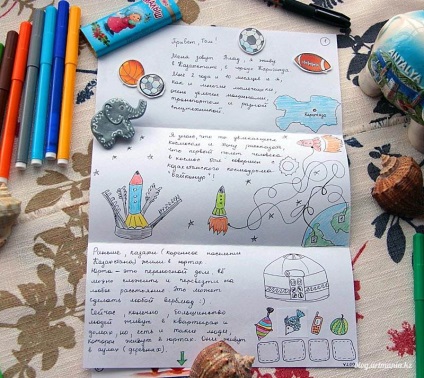 Привет, Том!
1
Меня зовут Влад, я живу
в Казахстане в городе Караганда.
Мне 2 года и 10 месяцев и я,
как и многие мальчишки,
очень увлечен машинами,
транспортом и разной
спецтехникой
Караганда
Я знаю, что ты увлекаешься
космосом и хочу рассказать,
что первый полет человека
в космос был совершен с
казахстанского космодрома
"Байконур"!
Раньше, казахи (коренное население
Казахстана) жили в юртах
Юрта - это переносной дом, её
можно сложить и перевезти на
любое расстояние. Это может
сделать любой верблюд :)
Сейчас конечно большинство
людей живут в квартирах и
домах, но, есть и такие люди,
которые живут в юртах. Они живут
в аулах (деревнях).
ANTALYA
blog.artmarin.kz